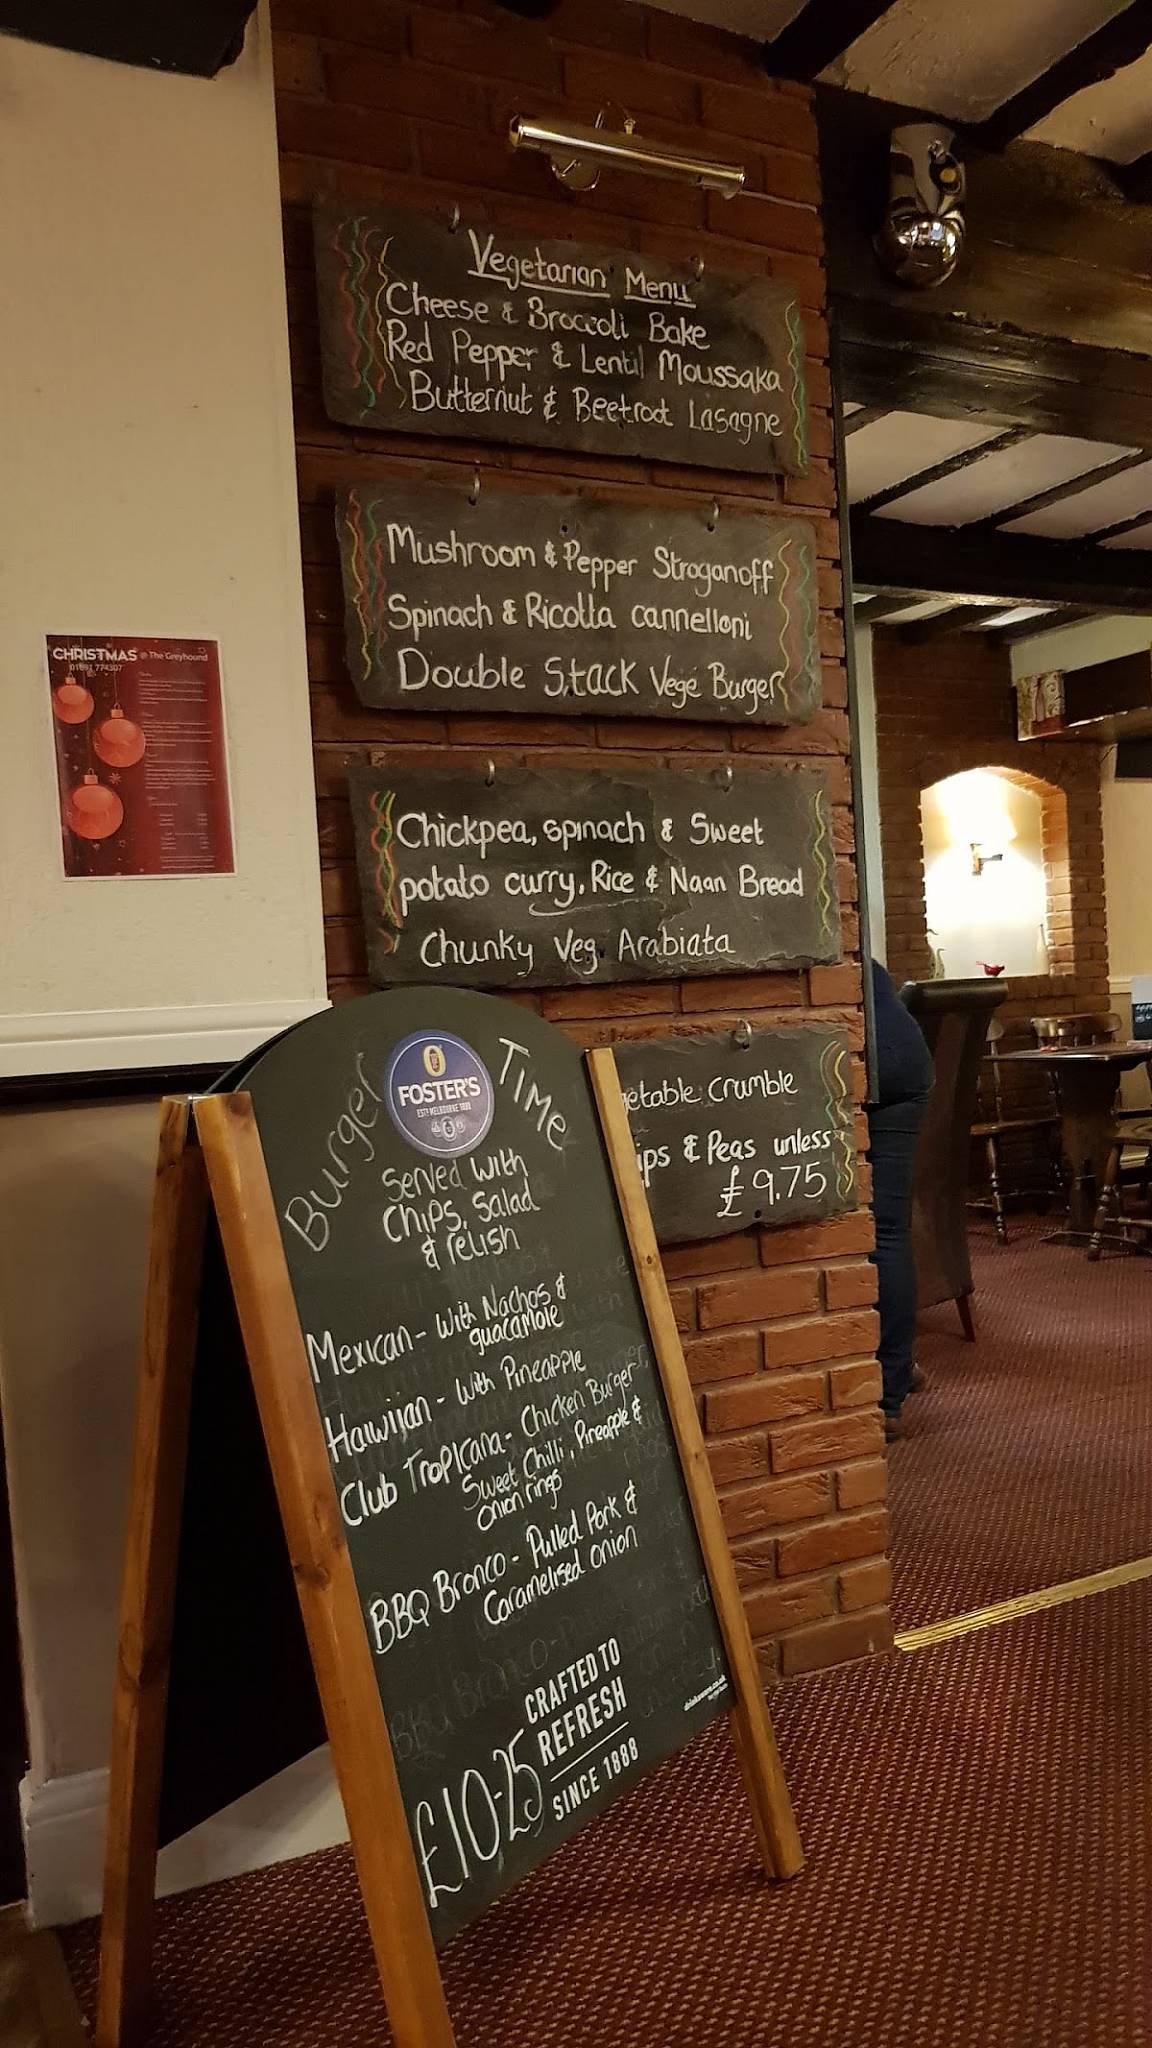 Vegetarian Menu
Cheese & Broccoli Bake
Red Pepper & Lentil Moussaka
Butternut & Beetroot Lasagne
Mushroom & Pepper Stroganoff
Spinach & Ricotta cannelloni
Double Stack Vege Burger
Chickpea, spinach & Sweet
potato curry, Rice & Naan Bread
Chunky Veg Arabiata
getable crumble
ips & Peas unless
£9.75
CHRISTMAS @ The Greyhound
Burger TIME
FOSTER'S
ESTD MELBOURNE 1888
Served With
Chips, Salad
& relish
Mexican - With Nachos &
guacamole
Haiwiian - With Pineapple
Club Tropicana - Chicken Burger,
Sweet Chilli, Pineapple &
Onion rings
BBQ Bronco - Pulled Pork &
Caramelised Onion
CRAFTED TO
REFRESH
SINCE 1888
£10.25
drinkaware.co.uk